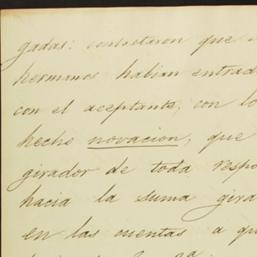 gadas: contestaron que
hermanos habian entrad
con el aceptante, con lo
hecho novacion, que
girador de toda respo
hacia la suma gira
en las cuentas a qu